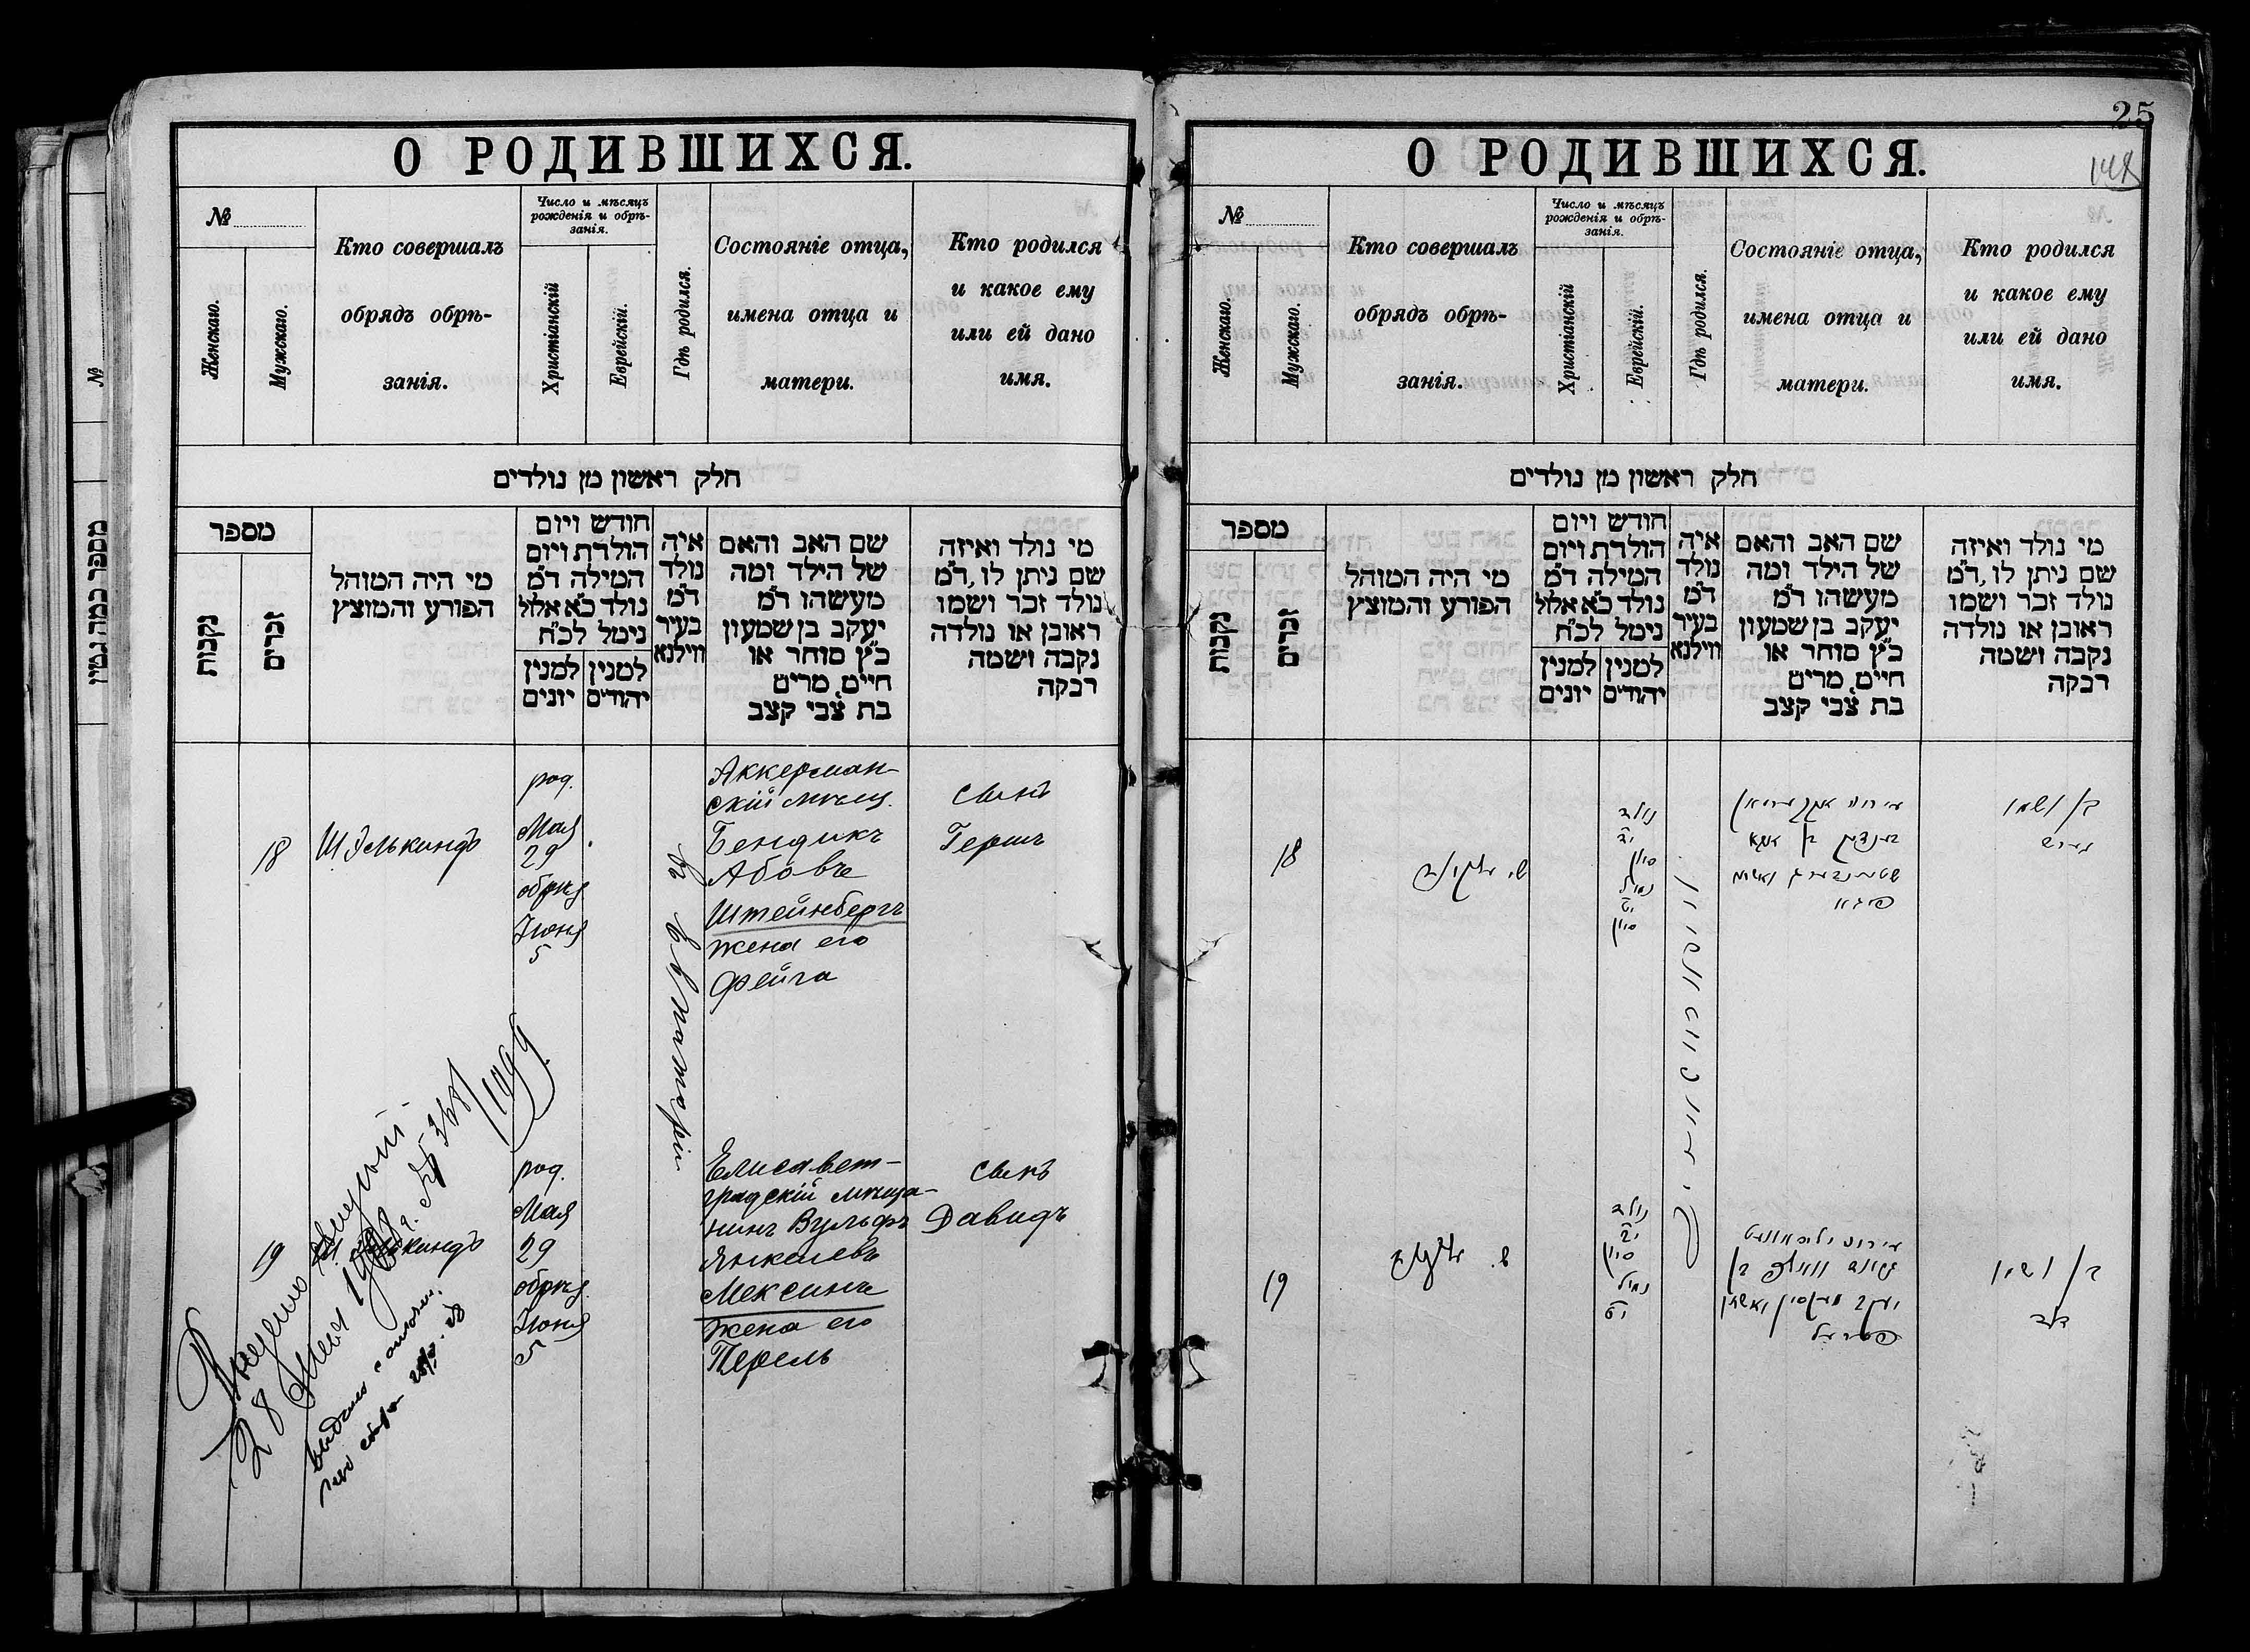 О РОДИВШИХСЯ.
№
Женскаго.
Мужскаго.
Кто совершалъ
обрядъ обрѣ-
занія.
Число и мѣсяцъ
рожденія и обрѣ-
занія.
Христіанскій
Еврейскій.
Гдѣ родился.
Состояніе отца,
имена отца и
матери.
Кто родился
и какое ему
или ей дано
имя.
חלק ראשון מן נולדים
מספר
נקבות
זכרים
מי היה המוהל
הפורע והמוצץ
חודש ויום
הולדת ויום
המילה ד״מ
נולד כ״א אלול
נימל לכ״ח
למנין יונים
למנין יהודים
איה
נולד
ד״מ
בעיר
ווילנא
שם האב והאם
של הילד ומה
מעשהו ד״מ
יעקב בן שמעון
כ״ץ סוחר או
חייט, מרים
בת צבי קצב
מי נולד ואיזה
שם ניתן לו, ד״מ
נולד זכר ושמו
ראובן או נולדה
נקבה ושמה
רבקה
18
Ш. Элькиндъ
род.
Мая
29
обрѣз.
Іюня
5
въ Евпаторіи
Аккерман-
скій мѣщ.
Бендикъ
Абовъ
Штейнбергъ
жена его
Фейга
сынъ
Гершъ
19
род.
Мая
29
обрѣз.
Іюня
5
Елисавет-
градскій мѣща-
нинъ Вульфъ
Янкелевъ
Мексинъ
жена его
Перель
сынъ
Давидъ
28 Мая
1909
№
מספר כמה גטין
25
О РОДИВШИХСЯ.
№
Женскаго.
Мужскаго.
Кто совершалъ
обрядъ обрѣ-
занія.
Число и мѣсяцъ
рожденія и обрѣ-
занія.
Христіанскій
Еврейскій.
Гдѣ родился.
Состояніе отца,
имена отца и
матери.
Кто родился
и какое ему
или ей дано
имя.
חלק ראשון מן נולדים
מספר
נקבות
זכרים
מי היה המוהל
הפורע והמוצץ
חודש ויום
הולדת ויום
המילה ד״מ
נולד כ״א אלול
נימל לכ״ח
למנין יונים
למנין יהודים
איה
נולד
ד״מ
בעיר
ווילנא
שם האב והאם
של הילד ומה
מעשהו ד״מ
יעקב בן שמעון
כ״ץ סוחר או
חייט, מרים
בת צבי קצב
מי נולד ואיזה
שם ניתן לו, ד״מ
נולד זכר ושמו
ראובן או נולדה
נקבה ושמה
רבקה
18
ש. עלקינד
נולד
סיון
נמול
סיון
בן ושמו
הירש
19
ש. עלקינד
נולד
סיון
נמול
בן ושמו
דוד